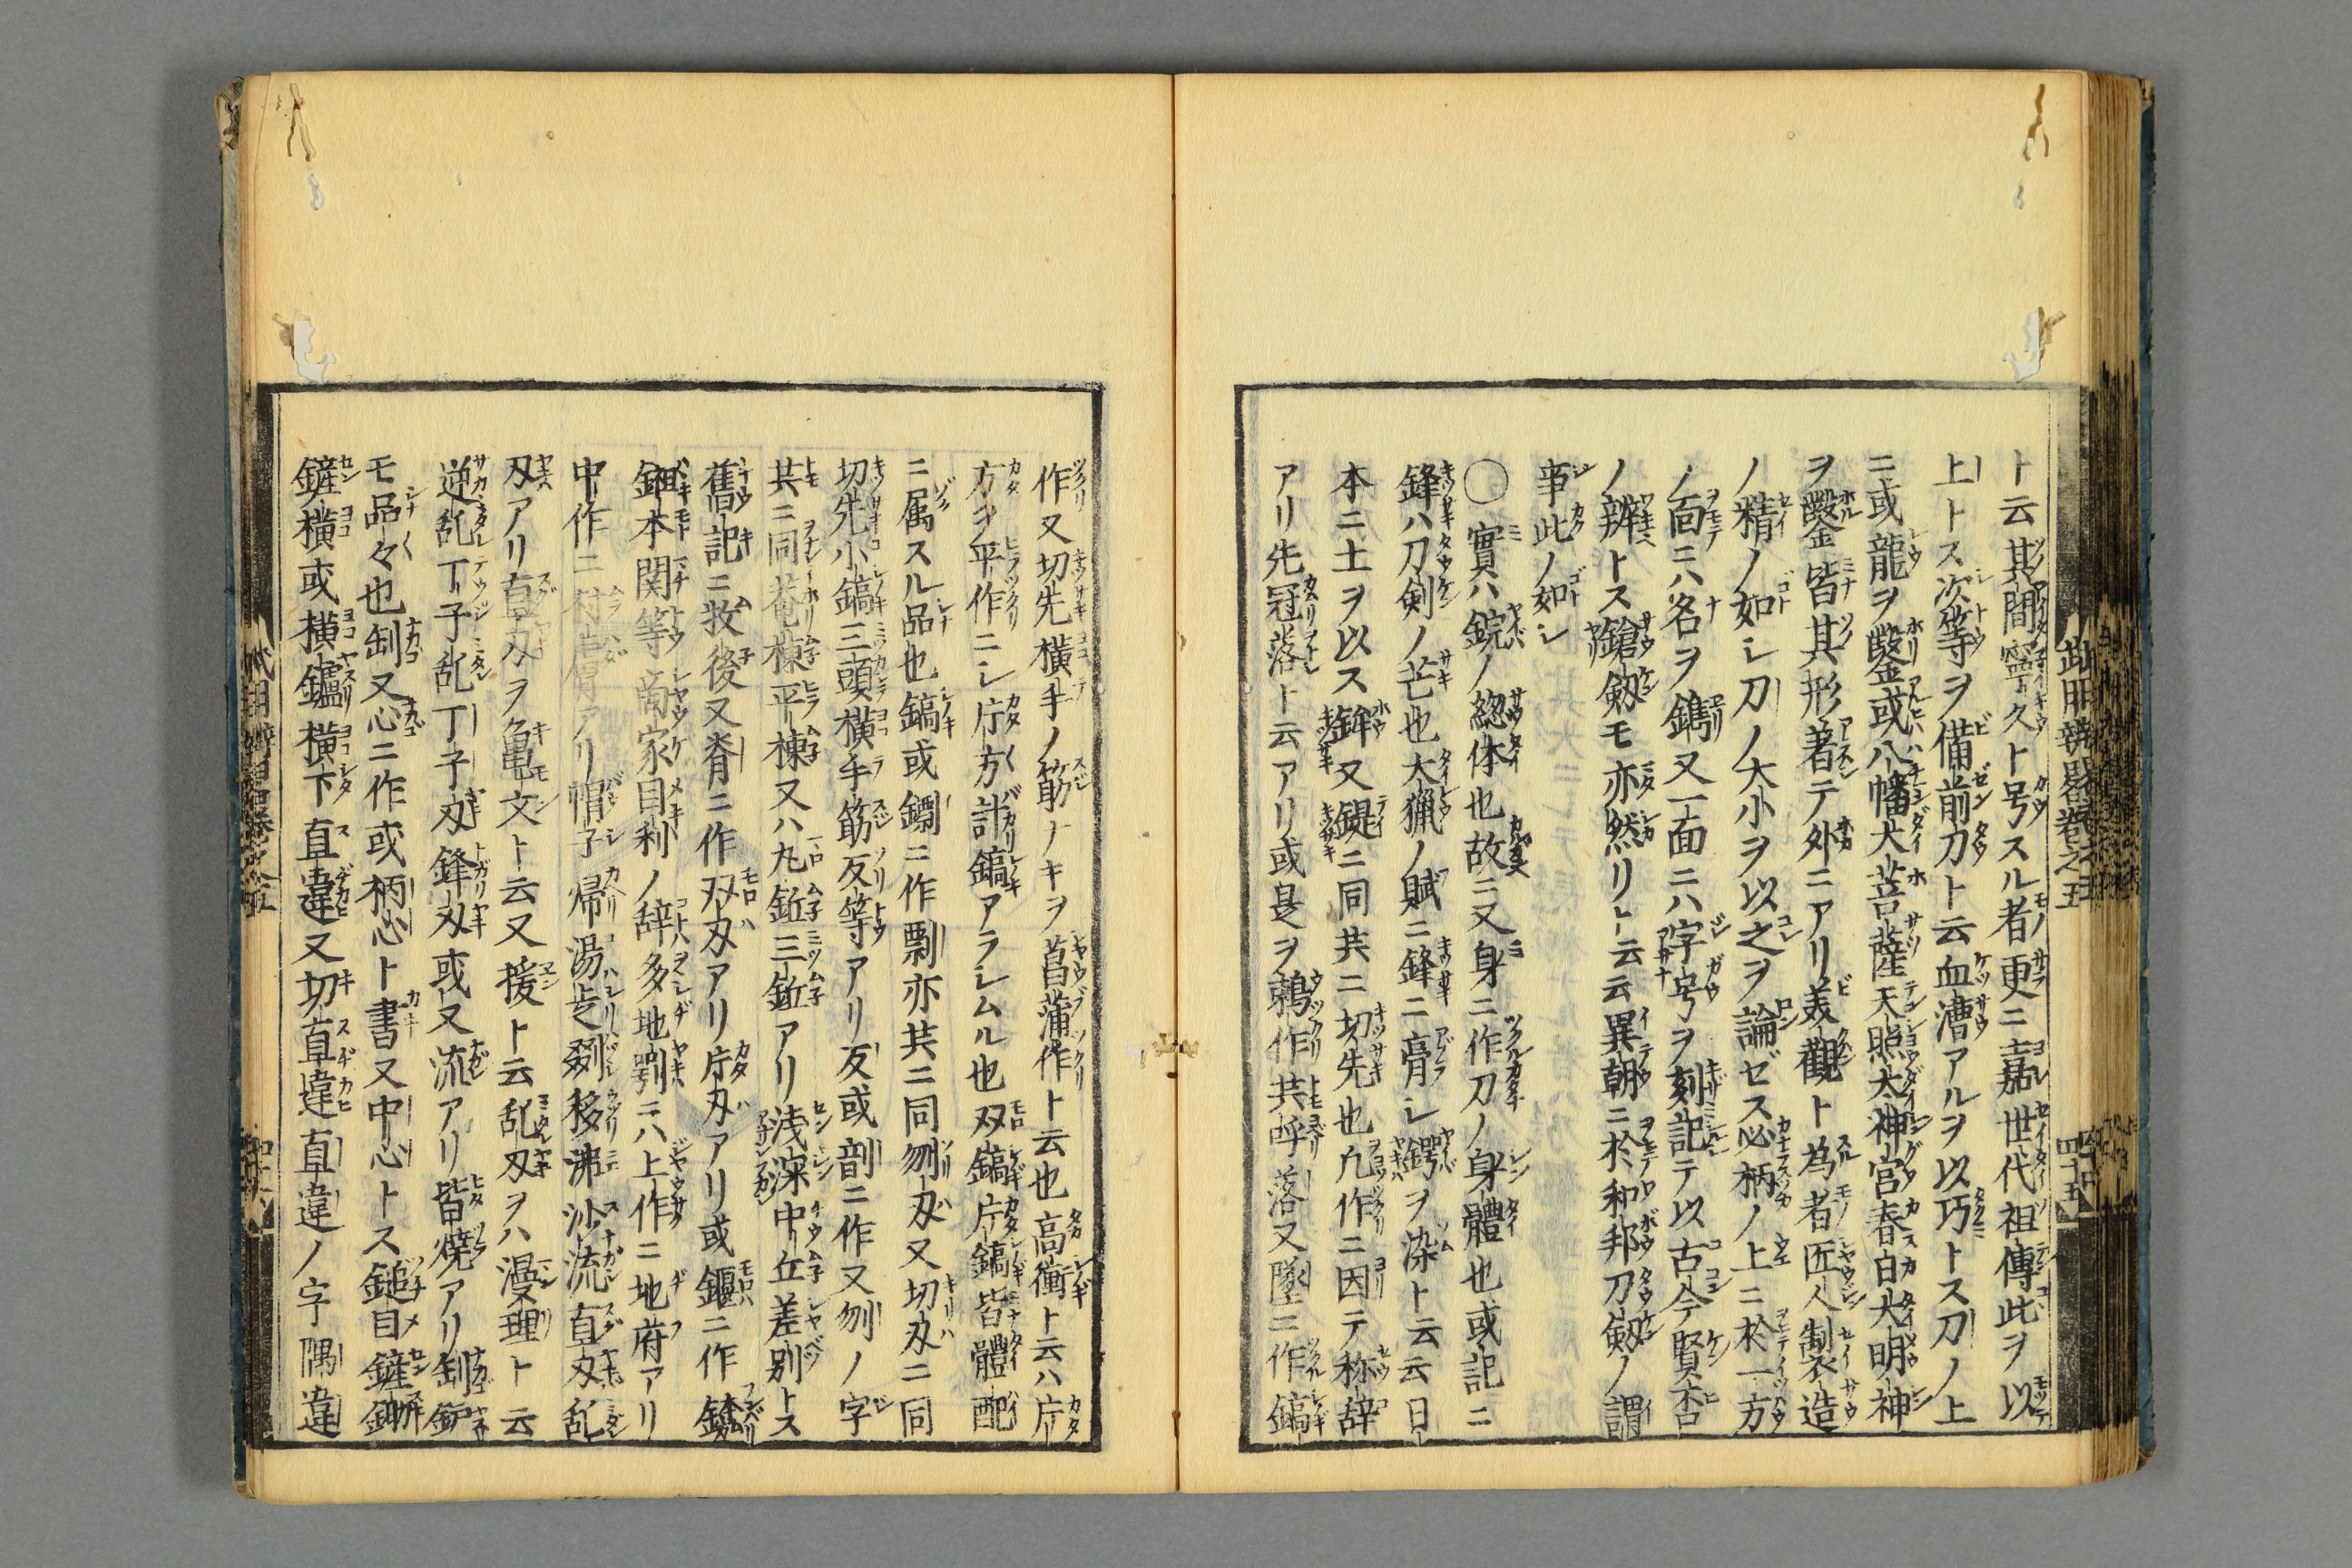 ト云其間寧久ト号スル者更ニ嘉世代祖傳此ヲ以
上トス次等ヲ備前刀ト云血漕アルヲ以巧トス刀ノ上
ニ或龍ヲ鑿或八幡大菩薩天照太神宮春日大明神
ヲ鑿皆其形著テ外ニアリ美觀ト為者匠人製造
ノ精ノ如シ刀ノ大小ヲ以之ヲ論ゼス必柄ノ上ニ於一方
ノ面ニハ名ヲ鐫又一面ニハ字号ヲ刻記テ以古今賢否
ノ辨トス鎗剱モ亦然リト云云異朝ニ於和邦刀剱ノ謂
事此ノ如シ
〇實ハ鋺ノ総体也故ニ又身ニ作刀ノ身體也或記ニ
鋒ハ刀剣ノ芒也大猟ノ賦ニ鋒ニ膏シ鍔ヲ染ト云云日
本ニ土ヲ以ス鉾又鍉ニ同共ニ切先也凡作ニ因テ称辞
アリ先冠落ト云アリ或是ヲ鵜作共呼落又墜ニ作鎬
作又切先横手ノ筯ナキヲ菖蒲作ト云也高衝ト云ハ片
方ヲ平作ニシ片方計鎬アラシムル也双鎬片鎬皆體配
ニ属スル品也鎬或鏢ニ作剽亦共ニ同刎刄又切刄ニ同
切先小鎬三頭横手筯反等アリ反或剖ニ作又刎ノ字
共ニ同菴棟平棟又ハ丸鉝三鉝アリ浅深中丘差別トス
舊記ニ牧後又脊ニ作刄刄アリ片刄アリ或鏂ニ作
鉏本関等商家目利ノ辞多地剿ニハ上作ニ地府アリ
中作ニ村アリ帽子帰湯走剟移沸沙流直刄乱
刄アリ直刄ヲ亀文ト云又援ト云乱刄ヲハ漫理ト云
逆乱丁子乱丁子刄鋒刄或又流アリ皆焼アリ釗鈩
モ品々也釗又心ニ作或柄心ト書又中心トス鎚目鏟
鏟横或横鑪横下直違又切直違直違ノ字隅違